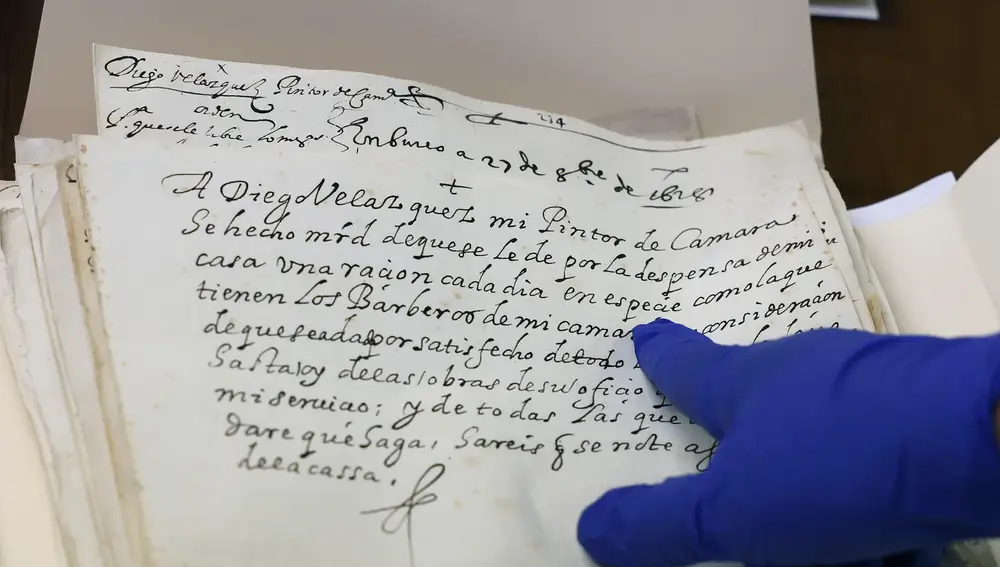 Diego Velazquez Pintor de Cam.ra
234
orden
S.a que se le libre lo mismo
En bureo a 27 de 8bre de 1628
A Diego Velazquez mi Pintor de Camara
Se hecho mrd de que se le de por la despensa de mi
casa una racion cada dia en especie como la que
tienen Los Barberos de mi camara consideracion
de que se a dado por satisfecho de todo
Sasta oy de las obras de su oficio
mi serviçio; y de todas Las que
dare que Saga, Sareis q se note a
de la cassa.